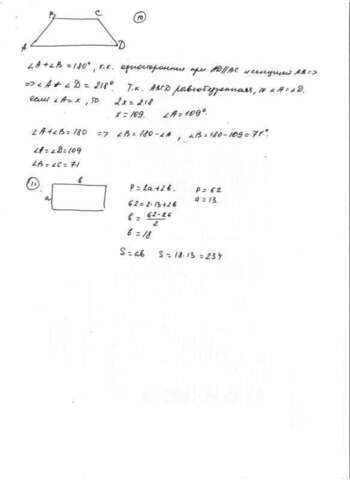 10
B C
A D
∠A+∠B=180°, т.к. односторонние при AD||BC и секущей AB =>
=> ∠A+∠D=218°. Т.к. ABCD равнобедренная, то ∠A=∠D.
если ∠A=x, то 2x=218
x=109. ∠A=109°.
∠A+∠B=180 => ∠B=180-∠A, ∠B=180-109=71°.
∠A=∠D=109
∠B=∠C=71
11
b
a
P=2a+2b. P=62
62=2·13+2b a=13.
b=62-26/2
b=18
S=ab S=18·13=234